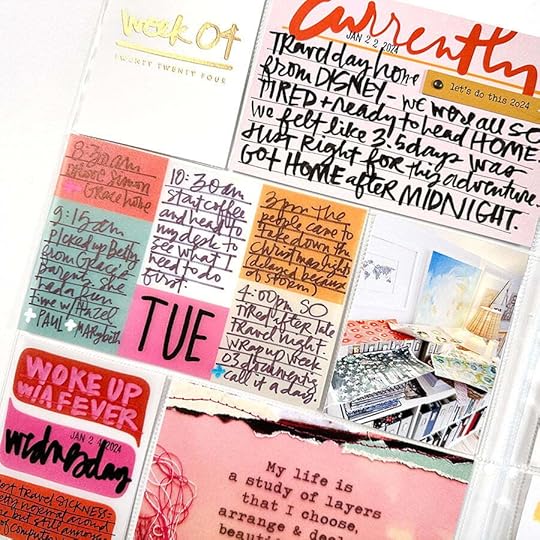 week 04
TWENTY TWENTY FOUR
Currently
JAN 22 2024
TRAVEL day home
from DISNEY - we were all SO
TIRED + ready to head HOME.
we felt like 3.5 days was
JUST RIGHT for this adventure.
GOT HOME after MIDNIGHT.
let's do this 2024
8:30am
Simon
Grace home
9:15am
PICKED up Betty
from Grace's
parents. She
had a fun
time w/ Hazel
+ PAUL + MARYbeth
10:30am
start coffee
and head to
my desk to
see what I
need to do
first.
TUE
3pm the
people came to
take down the
Christmas lights
delayed because
of storms)
4:00pm SO
TIRED after late
travel night
wrap up week
03 documenting
call it a day.
WOKE UP
W/A FEVER
JAN 24 2024
wednesday
post travel SICKNESS =
pretty normal around
here but still annoying
My life is
a study of layers
that I choose,
arrange &